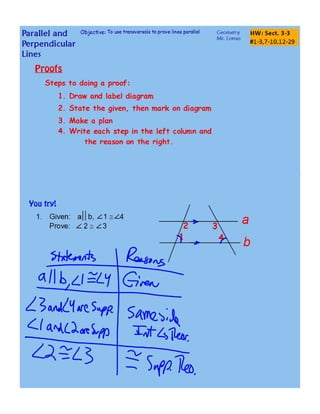 Parallel and
Perpendicular
Lines
Objective: To use transversals to prove lines parallel
Geometry
Mr. Lomas
HW: Sect. 3-3
#1-3,7-10,12-29
Proofs
Steps to doing a proof:
1. Draw and label diagram
2. State the given, then mark on diagram
3. Make a plan
4. Write each step in the left column and
the reason on the right.
You try!
1. Given: a||b, ∠1≅∠4
Prove: ∠2≅∠3
2 3 a
1 4 b
Statements Reasons
a||b, ∠1≅∠4 Given
∠3 and ∠4 are Supp Same side
∠1 and ∠2 are Supp Int ∠s Theo.
∠2≅∠3 ≅ Supp Theo.